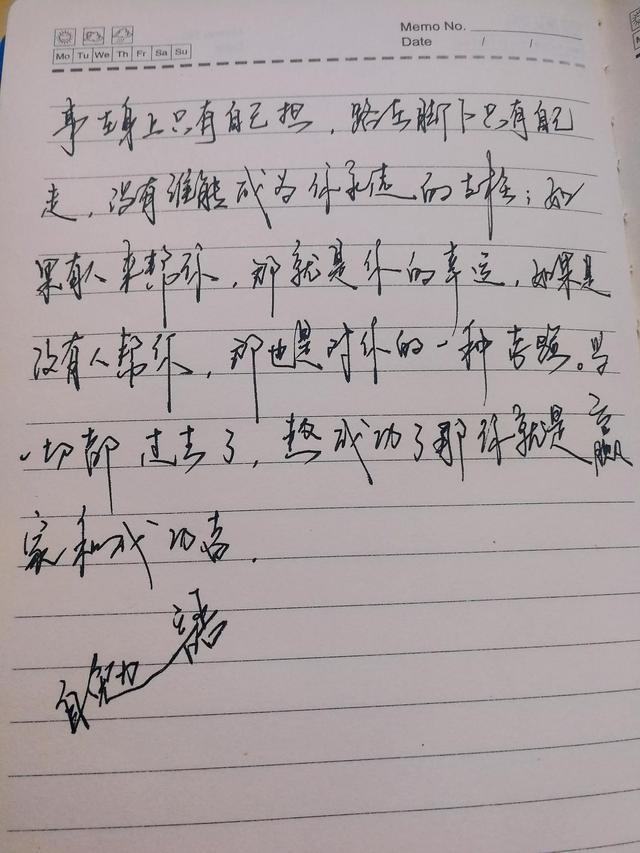 Memo No.
Date / /
Mo Tu We Th Fr Sa Su
事在身上只有自己担,路在脚下只有自己
走,没有谁能成为你永远的支柱;如
果有人来帮你,那就是你的幸运,如果是
没有人帮你,那也是对你的一种考验。当
一切都过去了,熬成功了那你就是赢
家和成功者.
自勉语